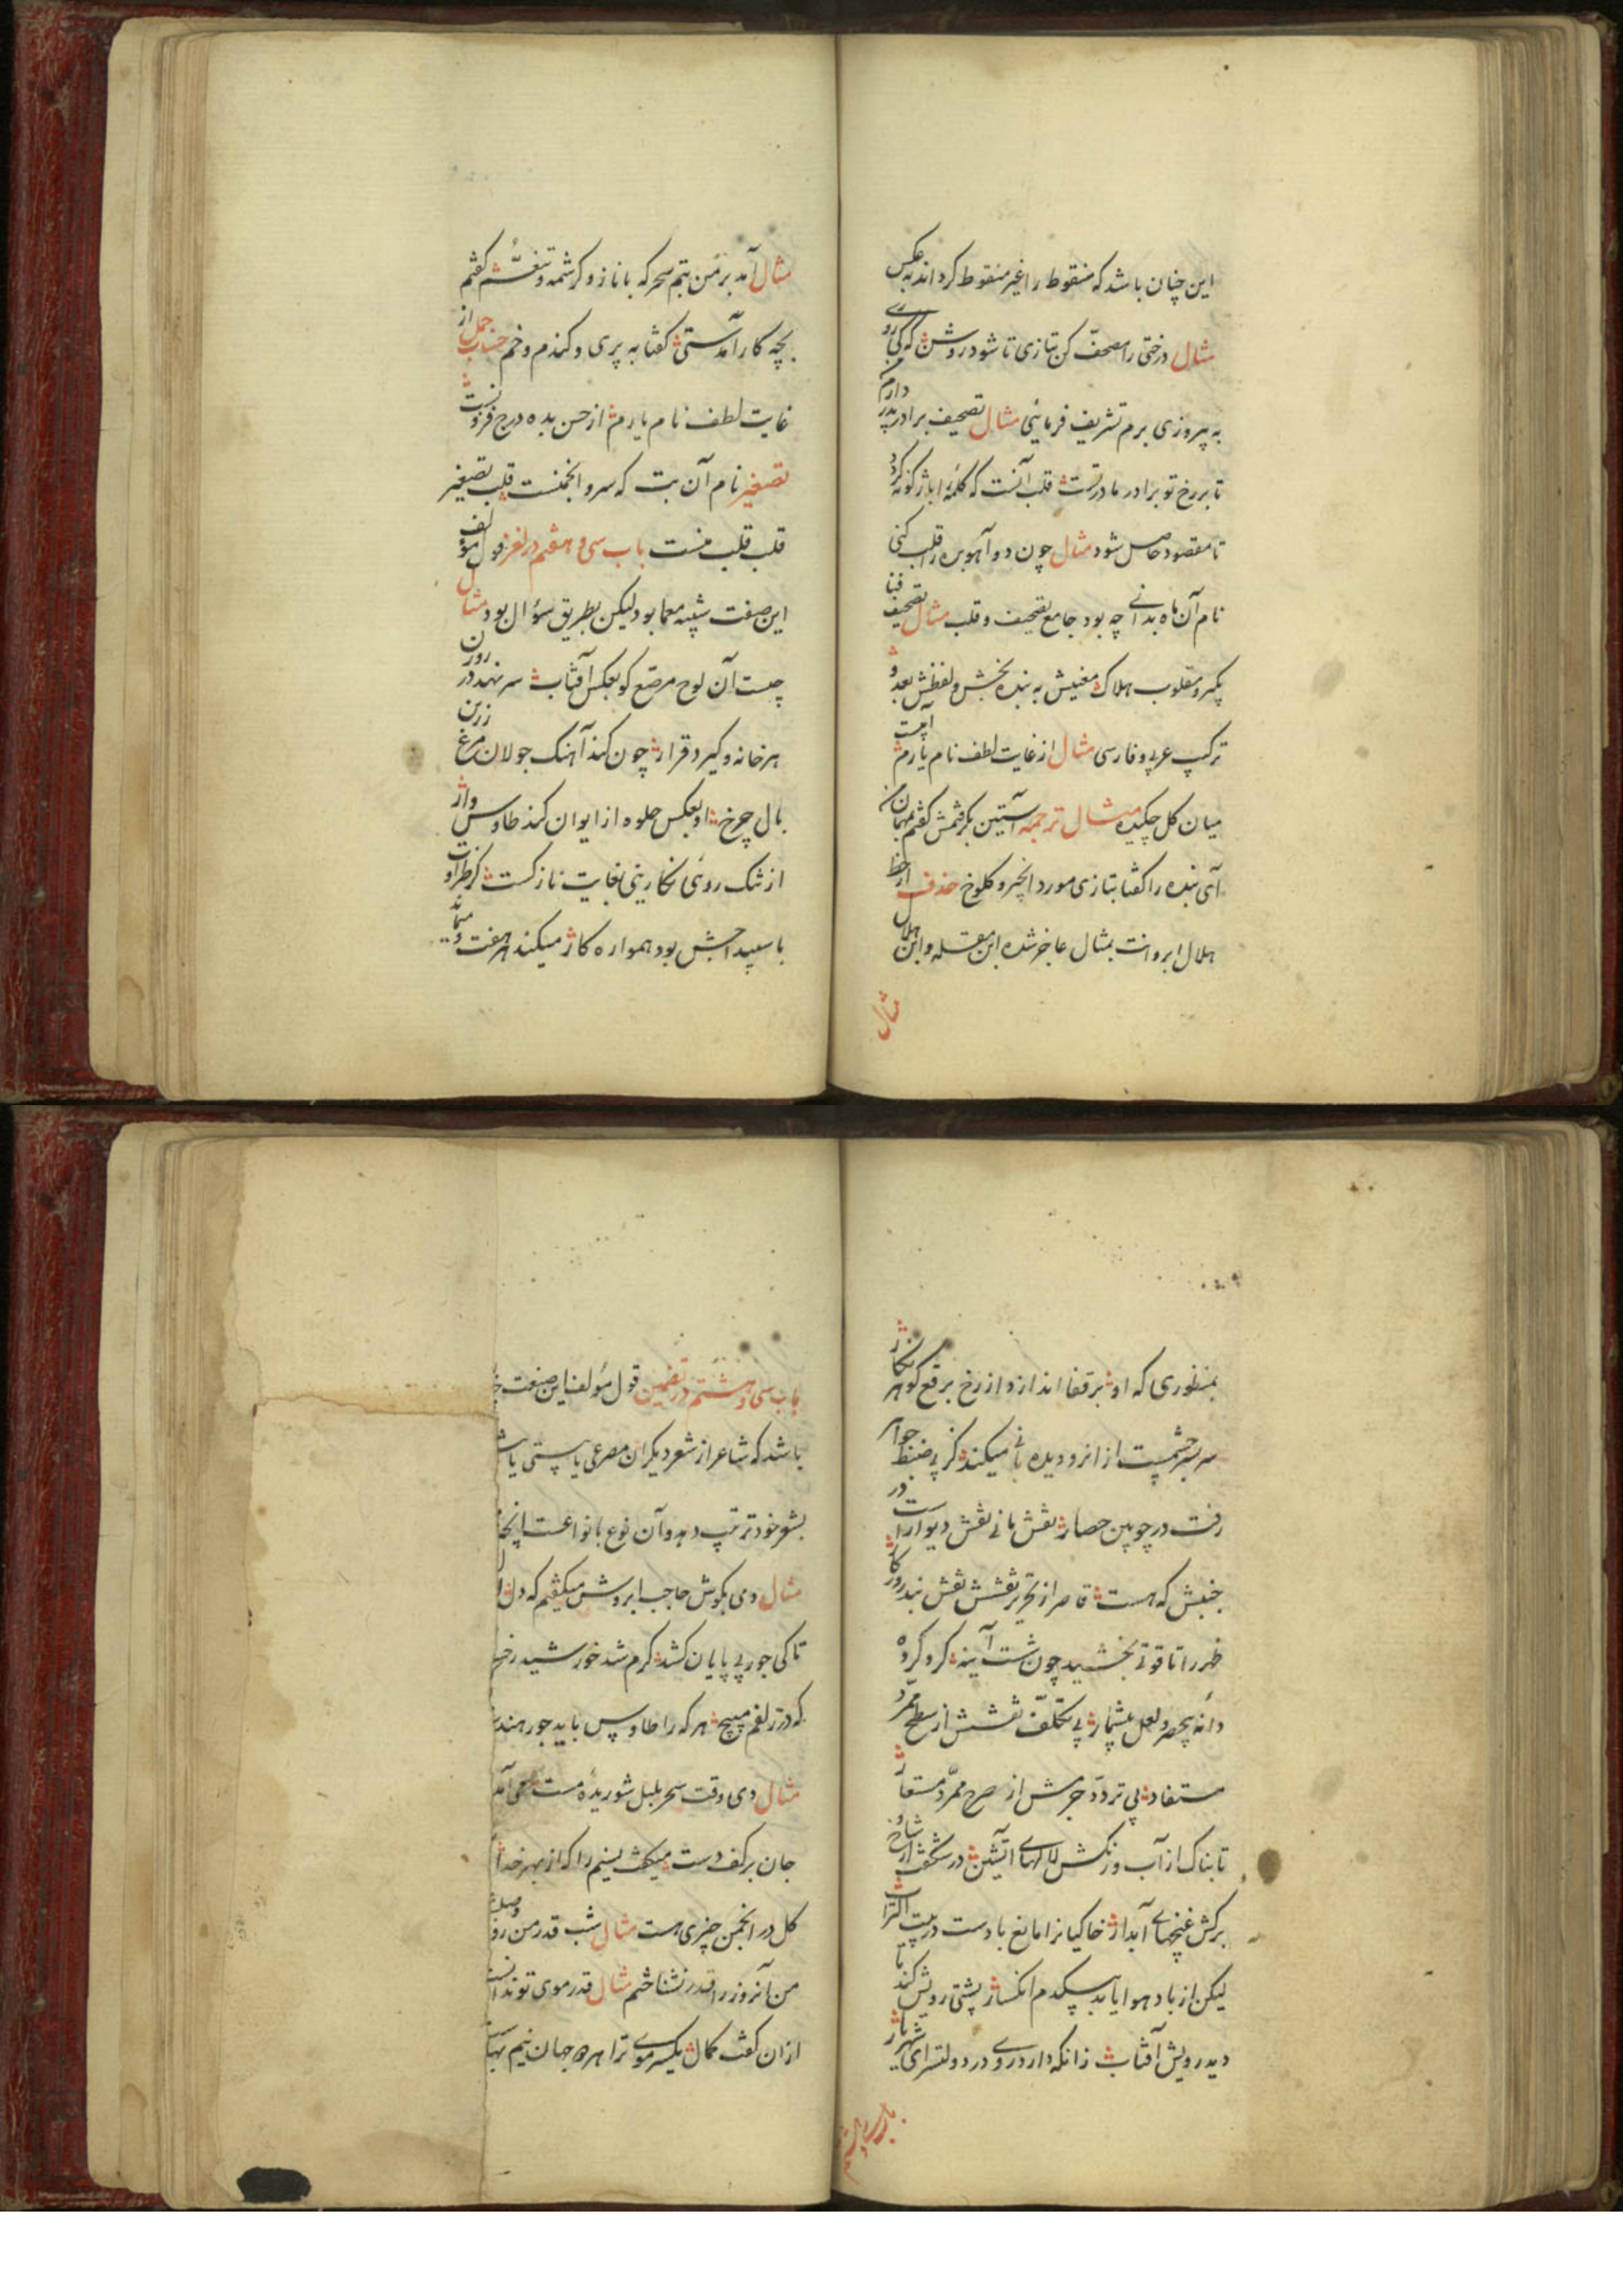 این چنان باشد که منقوط را غیر منقوط کرد اند به عکس
مثال درختی را مصحّف کن بتازی تا شود روشن که کی روی
به پیروزی برم تشریف فرمایئی مثال تصحیف برادر پدر دارم
تا بر رخ تو برادر مادر تست قلب آنست که کلمهٔ را باژکونه کرد
تا مقصود حاصل شود مثال چون دو آهو بره را قلب کنی
نام آن ماه بدانی چه بود جامع تصحیف و قلب مثال تصحیف قبا
یکیر و مقلوب هلاک معنیش به بنده بخش و لفظش بعد و
ترکیب عربی و فارسی مثال از غایت لطف نام یارم آبیست
میان کل چکیده مثال ترجمه آستین بکرفتمش کفتم بمهمان من
آی بنده را کفتا بتازی مورد انجیر و کلوخ حذف از خط
هلال ابروانت بمثال عاجز شده ابن مقله و ابن هلال
مثال
مثال آمد بر من بتم سحرکه با ناز و کرشمه و تنغّم کفتم
بچه کار آمدستی کفتا به پری و کندم و خم حساب جمل از
غایت لطف نام یارم از حسن بده درج فزونست
تصغیر نام آن بت که سرو انجمنست قلب تصغیر
قلب قلب منست باب سی و هفتم در لغز قول مؤلف
این صفت شبیه معما بود لیکن بطریق سؤال بود مثال
چیست آن لوح مرصّع کو بعکس آفتاب سر نهد در روزن
هر خانه و کیرد قرار چون کند آهنک جولان مرغ زرین
بال چرخ او بعکس جلوه از ایوان کند طاوس وار
از تنک روئی نکارینی بغایت نازکست کز طراوت
با سپیداجش بود همواره کار میکند هر هفت و میماند
بمنظوری که او بر قفا اندازد از رخ برقع کوهر نکار
سر بسر چشمیست از انرو دیده بانی میکند کز پی ضبط جواهر
رفت در چوبین حصار نقش مانی نقش دیوارست در
جنبش که هست قاصر از تحریر نقشش نقش بند روزکار
خر را تا قوتی بخشید چون شست آینه کرد کرده
دانهٔ بیحصر و لعل بیشمار بی تکلّف نقشش از سطح ممرّد
مستفاد بی تردّد جرمش از صرح ممرّد مستعار
تابناک از آب و رنکش لالهای آتشین در شکفت از شاخ و
برکش غنچهای آبدار خاکیانرا مانع بادست در بیت التراب
لیکن از باد هوا یابد بیکدم انکسار پشتی رویش کند تا
دید رویش آفتاب زانکه دارد روی در دولتسرای شهریار
باب سی و هشتم
باب سی و هشتم در تضمین قول مؤلف این صنعت
باشد که شاعر از شعر دیکران مصرعی یا بیتی یا
بشعر خود ترتیب دهد و آن نوع بانواعست
مثال دی بکوش حاجب ابروش میکفتم که دل
تا کی جور بی پایان کشد کرم شد خورشید رخ
که در زلفم مپیچ هر که را طاوس باید جور هند
مثال دی وقت سحر بلبل شوریدهٔ مست می آمد
جان بر کف دست میکفت نسیم را که از بهر خدا
کل در انجمن چیزی هست مثال شب قدر من روز وصلت
من آنروز را قدر نشناختم مثال قدر موی تو ندانست
از آن کفت کمال یکسر موی ترا هر دو جهان نیم بها